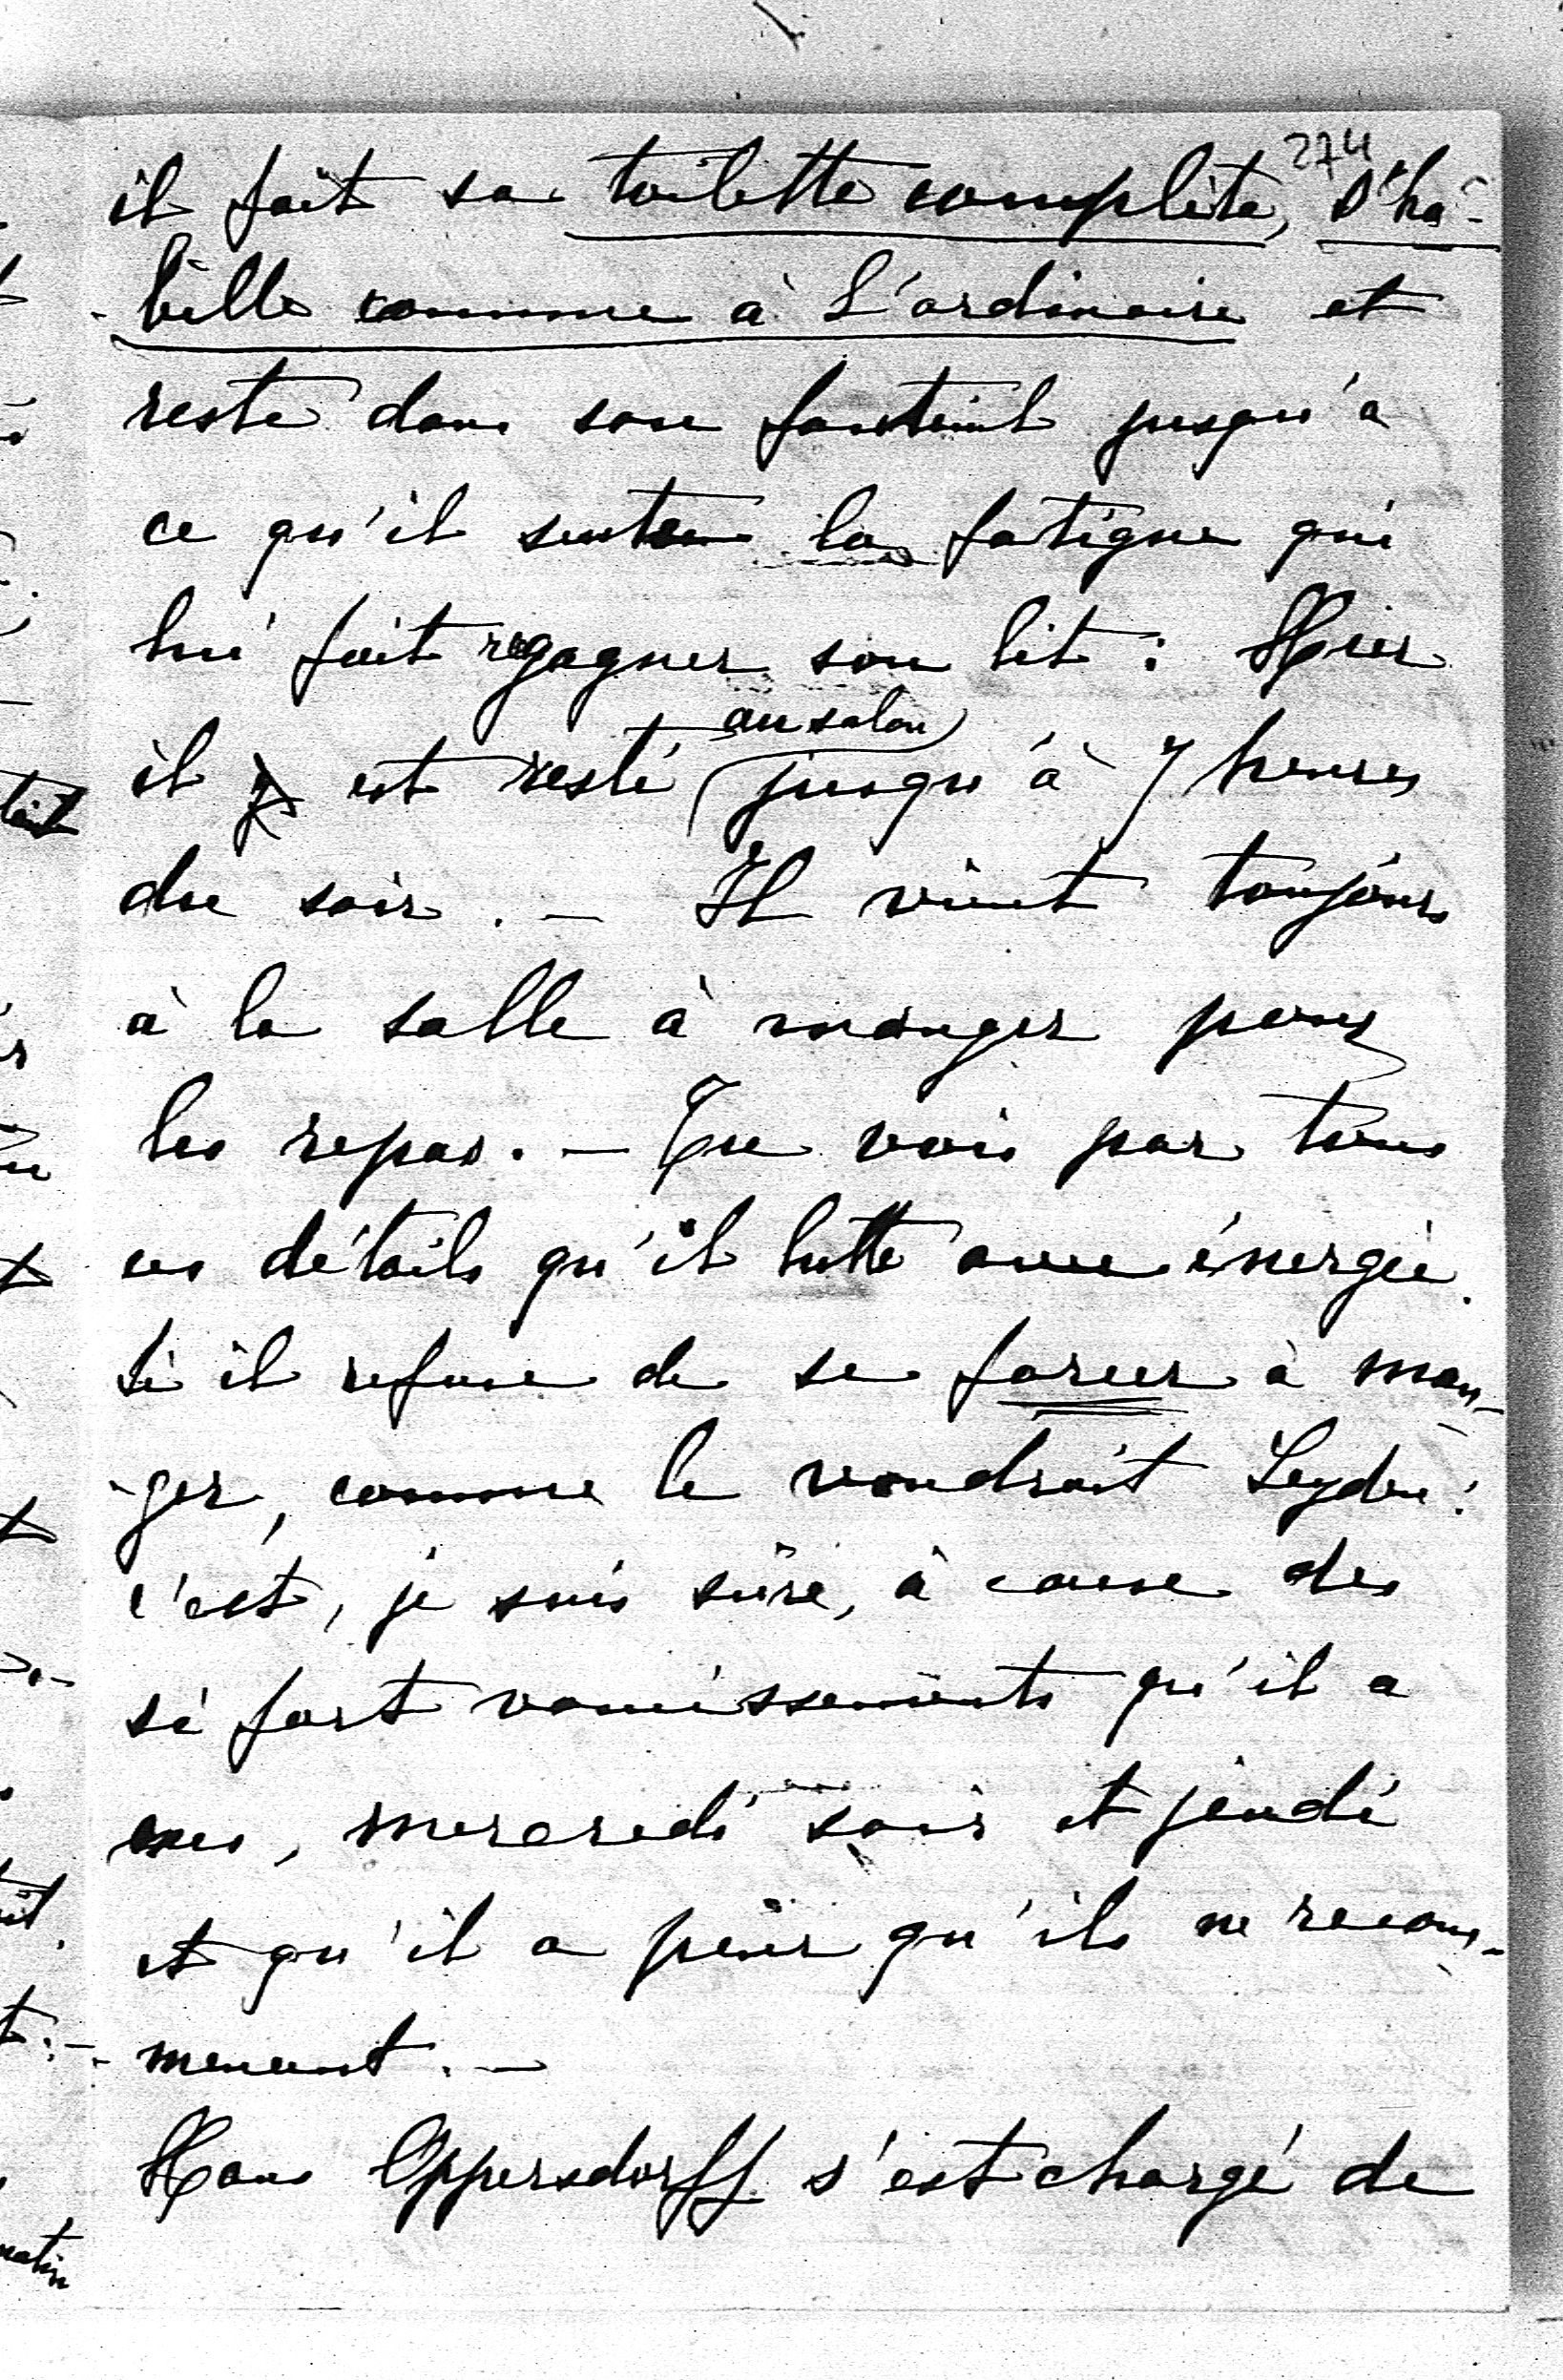 274
il fait sa toilette complète, s'ha-
-bille comme à l'ordinaire et
reste dans son fauteuil jusqu'à
ce qu'il sente la fatigue qui
lui fait regagner son lit : Hier
au salon
il est resté jusqu'à 7 heures
du soir. — Il vient toujours
à la salle à manger pour
les repas. — Tu vois par tous
ces détails qu'il lutte avec énergie.
Si il refuse de se forcer à man-
-ger, comme le voudrait Leyden :
c'est, je suis sûre, à cause des
si fort vomissements qu'il a
eus, mercredi soir et jeudi
et qu'il a peur qu'ils ne recom-
-mencent. —
Hans Oppersdorff s'est chargé de